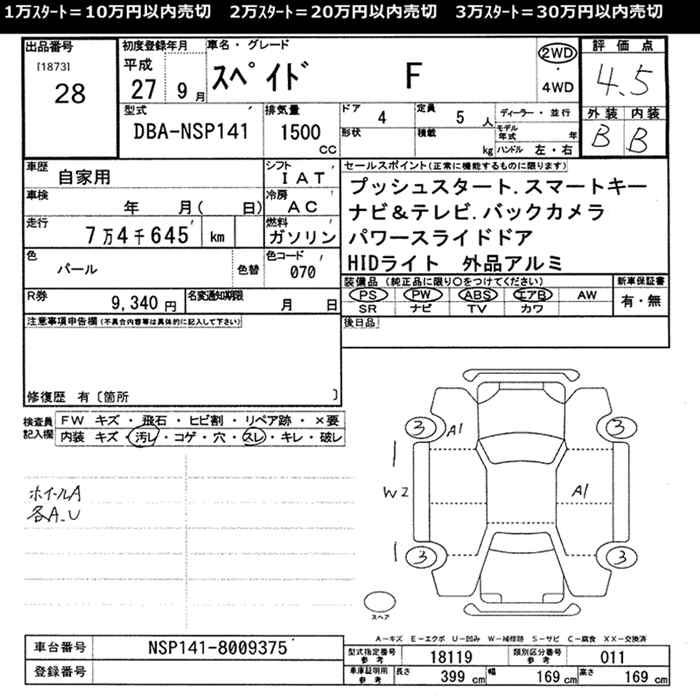 1万ｽﾀｰﾄ＝10万円以内売切　2万ｽﾀｰﾄ＝20万円以内売切　3万ｽﾀｰﾄ＝30万円以内売切
出品番号
[1873]
28
初度登録年月
平成
27 9 月
車名・グレード
スペイド F
2WD
・
4WD
評価点
4.5
外装 内装
B B
型式
DBA-NSP141
排気量
1500
CC
ドア 4
形状
定員 5 人
積載 kg
ディーラー・並行
モデル年式 年
ハンドル 左・右
車歴
自家用
シフト
IAT
車検
年 月( 日)
冷房
AC
走行
7万4千645 km
燃料
ガソリン
色
パール
色替
色コード
070
R券
9,340 円
名変通知期限
月 日
セールスポイント(正常に機能するものに限ります)
プッシュスタート.スマートキー
ナビ&テレビ.バックカメラ
パワースライドドア
HIDライト 外品アルミ
装備品(純正品に限り○をつけてください)
PS PW ABS エアB AW
SR ナビ TV カワ
新車保証書
有・無
後日品
注意事項申告欄(不具合内容等は具体的に記入して下さい)
修復歴 有〔箇所 〕
検査員
記入欄
FW キズ・飛石・ヒビ割・リペア跡・×要
内装 キズ・汚レ・コゲ・穴・スレ・キレ・破レ
ホイールA
各A.U
3 A1 3
W2 A1
3 3
スペア
A―キズ E―エクボ U―凹み W―補修跡 S―サビ C―腐食 XX―交換済
車台番号 NSP141-8009375
登録番号
型式指定番号
参考
18119
類別区分番号
参考
011
車庫証明用
参考
長さ 399 cm 幅 169 cm 高さ 169 cm